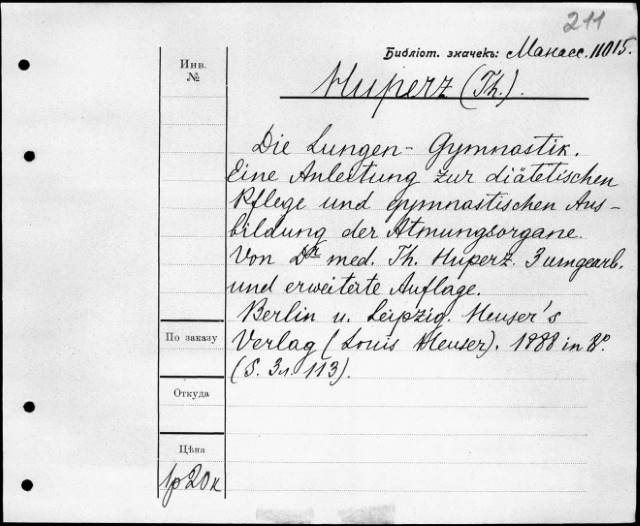 211
Библіот. значекъ: Манасс. 11015.
Инв.
№
Huperz (Th.).
Die Lungen-Gymnastik.
Eine Anleitung zur diätetischen
Pflege und gymnastischen Aus-
bildung der Atmungsorgane.
Von Dr med. Th. Huperz. 3 umgearb.
und erweiterte Auflage.
Berlin u. Leipzig. Heuser's
Verlag (Louis Heuser). 1888 in 8°.
(S. 3л. 113).
По заказу
Откуда
Цѣна
1р 20к